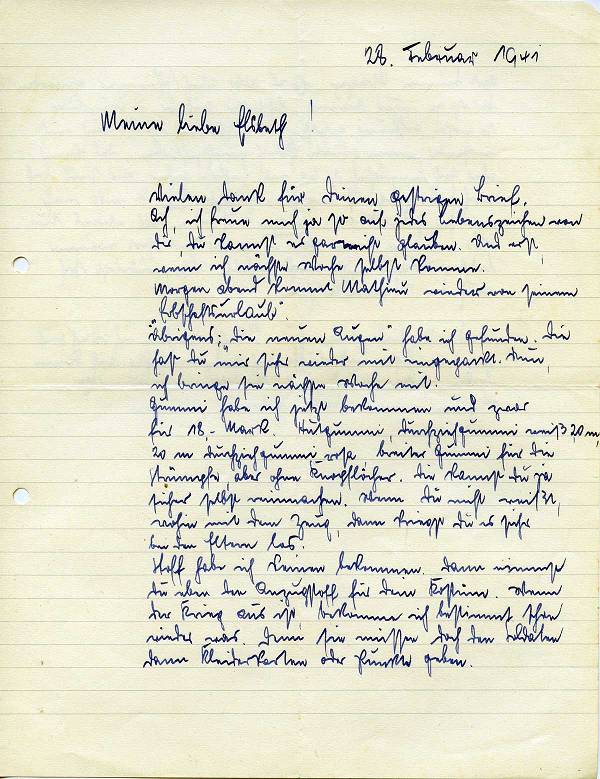 28. Februar 1941
Meine liebe Elsbeth!
Vielen Dank für Deinen gestrigen Brief.
Ach, ich freue mich ja so auf jedes Lebenszeichen von
Dir, Du kannst es gar nicht glauben. Und erst,
wenn ich nächste Woche selbst komme.
Morgen abend kommt Mathieu wieder von seinem
"Erbschaftsurlaub".
Übrigens: "die neuen Augen" habe ich gefunden. Die
hast Du mir sicher wieder mit eingepackt. Denn,
ich bringe sie nächste Woche mit.
Gummi habe ich jetzt bekommen und zwar
für 18,- Mark. Hutgummi, Durchziehgummi weiß 20 m,
20 m Durchziehgummi rosa breiter Gummi für die
Strümpfe, aber ohne Knopflöcher. Die kannst Du ja
sicher selbst reinmachen. Wenn Du nicht weißt,
wohin mit dem Zeug, dann kriegst Du es sicher
bei den Eltern los.
Stoff habe ich keinen bekommen. Dann nimmst
Du eben den Anzugstoff für dein Kostüm. Wenn
der Krieg aus ist, bekomme ich bestimmt schon
wieder was. Denn sie müssen doch den Soldaten
dann Kleiderkarten oder Punkte geben.